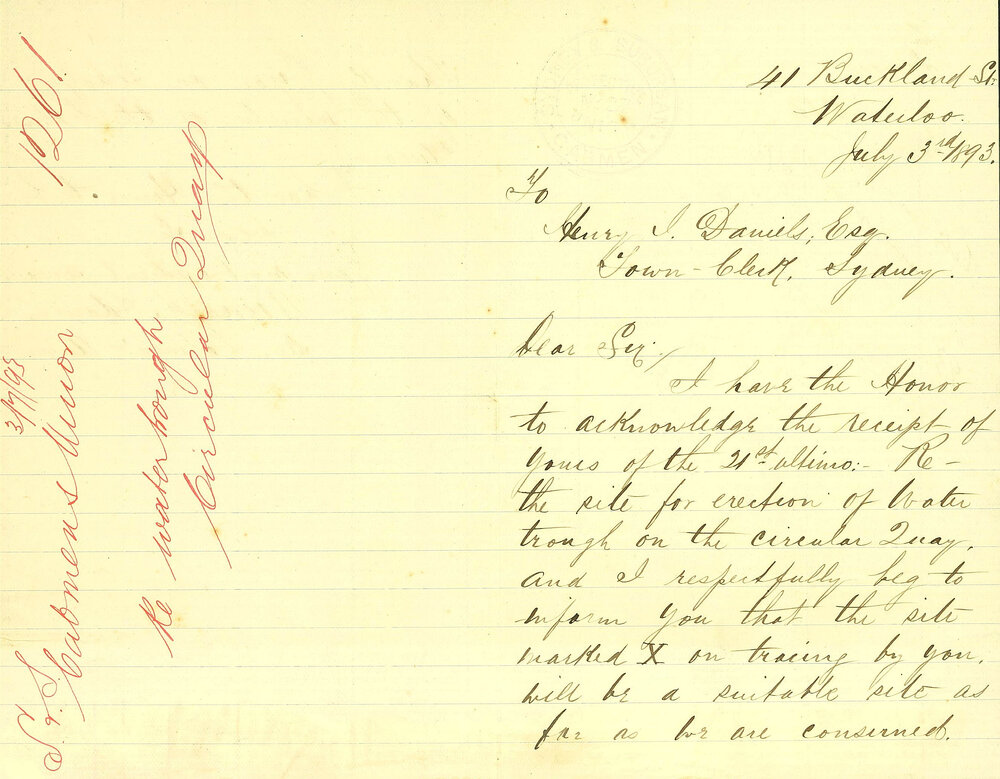 41 Buckland St.
Waterloo.
July 3rd/1893.
To
Henry J. Daniels, Esq.
Town-Clerk, Sydney.
Dear Sir,/
I have the Honor
to acknowledge the receipt of
yours of the 21st ultimo:- Re-
the site for erection of Water
trough on the circular Quay,
and I respectfully beg to
inform you that the site
marked X on tracing by you,
will be a suitable site as
far as we are conserned.
1261
3/7/93
S. & S. Cabmens Union
Re water trough
Circular Quay